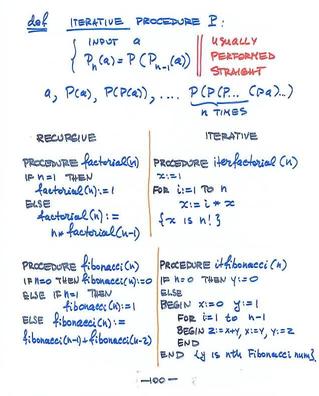 def ITERATIVE PROCEDURE P:
INPUT a
Pn(a) = P(Pn-1(a))
USUALLY
PERFORMED
STRAIGHT
a, P(a), P(P(a)), .... P(P(P... (Pa)...)
n TIMES
RECURSIVE
PROCEDURE factorial(n)
IF n=1 THEN
factorial(n):=1
ELSE
factorial(n):=
n*factorial(n-1)
ITERATIVE
PROCEDURE iterfactorial (n)
x:=1
FOR i:=1 TO n
x:= i * x
{x IS n!}
PROCEDURE fibonacci(n)
IF n=0 THEN fibonacci(n):=0
ELSE IF n=1 THEN
fibonacci(n):=1
ELSE fibonacci(n):=
fibonacci(n-1)+fibonacci(n-2)
PROCEDURE itfibonacci(n)
IF n=0 THEN y:=0
ELSE
BEGIN x:=0 y:=1
FOR i:=1 to n-1
BEGIN z:=x+y, x:=y, y:=z
END
END {y is nth Fibonacci num}
-100-